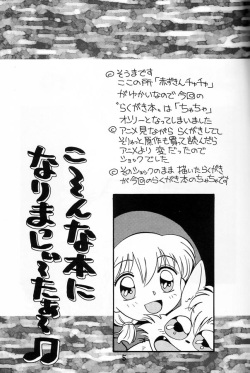 ◎そうまです
ここの所「赤ずきんチャチャ」
がゆかいなので今回の
"らくがき本"は「ちゃちゃ」
オンリーとなってしまいました
◎アニメ見ながららくがきしてし
そりゃっと原作も買って読んだら
アニメより変だったので
ショックでした
◎そのショックのまま描いたらくがき
が今回のらくがき本のちゃちゃです
こそんな本に
なりまっし〜たぁ〜♫